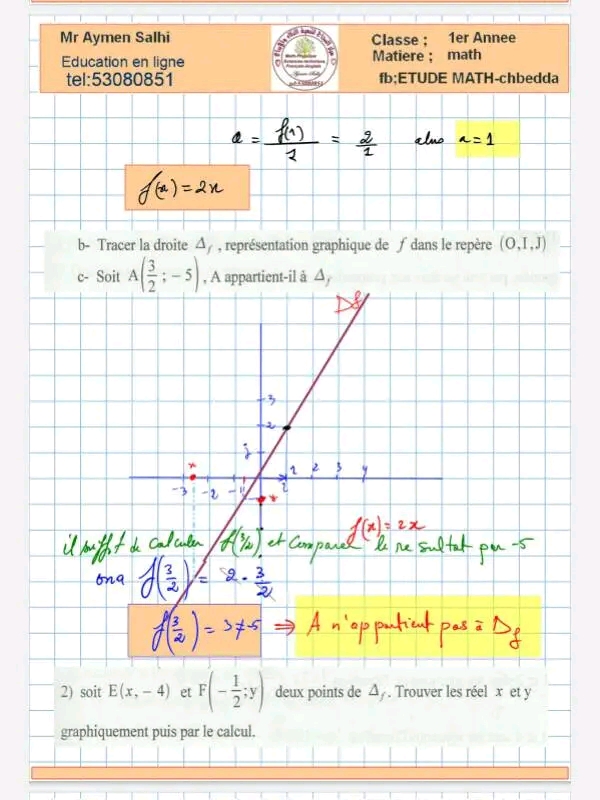 Mr Aymen Salhi
Education en ligne
tel:53080851
Classe ; 1er Annee
Matiere ; math
fb;ETUDE MATH-chbedda
a = f(1)/1 = 2/1 alors a = 1
f(x) = 2x
b- Tracer la droite Δf , représentation graphique de f dans le repère (O,I,J)
c- Soit A(3/2 ; −5) , A appartient-il à Δf
Df
3
2
j
-3 -2 -1 1 2 3 4
x
f(x) = 2x
il suffit de calculer f(3/2) et comparer le resultat par -5
ona f(3/2) = 2 · 3/2
f(3/2) = 3 ≠ -5 ⇒ A n'appartient pas à Df
2) soit E(x,−4) et F(−1/2;y) deux points de Δf. Trouver les réel x et y
graphiquement puis par le calcul.